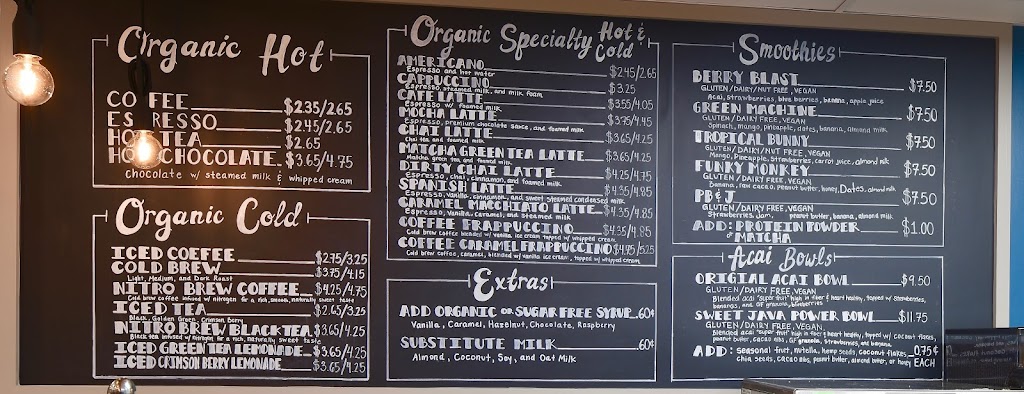 Organic Hot
COFFEE $2.35/2.65
ESPRESSO $2.45/2.65
HOT TEA $2.65
HOT CHOCOLATE $3.65/4.75
Chocolate w/ steamed milk & whipped cream
Organic Cold
ICED COEFEE $2.75/3.25
COLD BREW $3.75/4.15
Light, Medium, and Dark Roast
NITRO BREW COFFEE $4.25/4.75
Cold brew coffee infused w/ nitrogen for a rich, smooth, naturally sweet taste
ICED TEA $2.65/3.25
Black, Golden Green, Crimson Berry
NITRO BREW BLACK TEA $3.65/4.25
Black tea infused w/ nitrogen for a rich, naturally sweet taste
ICED GREEN TEA LEMONADE $3.65/4.25
ICED CRIMSON BERRY LEMONADE $3.65/4.25
Organic Specialty Hot & Cold
AMERICANO $2.45/2.65
Espresso and hot water
CAPPUCCINO $3.25
Espresso, steamed milk, and milk foam
CAFE LATTE $3.55/4.05
Espresso w/ foamed milk
MOCHA LATTE $3.75/4.45
Espresso, premium chocolate sauce, and foamed milk
CHAI LATTE $3.65/4.25
Chai tea and foamed milk
MATCHA GREEN TEA LATTE $3.65/4.25
Matcha green tea and foamed milk
DIRTY CHAI LATTE $4.25/4.75
Espresso, chai, cinnamon, and foamed milk
SPANISH LATTE $4.35/4.85
Espresso, vanilla, cinnamon, and sweet steamed condensed milk
CARAMEL MACCHIATO LATTE $4.35/4.85
Espresso, Vanilla, caramel, and steamed milk
COFFEE FRAPPUCCINO $4.35/4.85
Cold brew coffee blended w/ vanilla ice cream topped w/ whipped cream
COFFEE CARAMEL FRAPPUCCINO $4.75/5.25
Cold brew coffee, caramel, blended w/ vanilla ice cream, topped w/ whipped cream
Extras
ADD ORGANIC OR SUGAR FREE SYRUP 60¢
Vanilla, Caramel, Hazelnut, Chocolate, Raspberry
SUBSTITUTE MILK 60¢
Almond, Coconut, Soy, and Oat Milk
Smoothies
BERRY BLAST $7.50
GLUTEN/DAIRY/NUT FREE, VEGAN
Acai, strawberries, blue berries, banana, apple juice
GREEN MACHINE $7.50
GLUTEN/DAIRY FREE, VEGAN
Spinach, mango, pineapple, dates, banana, almond milk
TROPICAL BUNNY $7.50
GLUTEN/DAIRY/NUT FREE, VEGAN
Mango, Pineapple, Strawberries, carrot juice, almond milk
FUNKY MONKEY $7.50
GLUTEN/DAIRY FREE, VEGAN
Banana, raw cacao, peanut butter, honey, Dates, almond milk
PB&J $7.50
GLUTEN/DAIRY FREE, VEGAN
Strawberries, jam, peanut butter, banana, almond milk
ADD: PROTEIN POWDER $1.00
or MATCHA
Acai Bowls
ORIGIAL ACAI BOWL $9.50
GLUTEN/DAIRY FREE, VEGAN
Blended acai "super fruit" high in fiber & heart healthy, topped w/ strawberries,
bananas, and GF granola, blueberries
SWEET JAVA POWER BOWL $11.75
GLUTEN/DAIRY FREE, VEGAN,
Blended acai "super fruit" high in fiber & heart healthy, topped w/ coconut flakes,
peanut butter, cacao nibs, GF granola, strawberries, and banana
ADD: seasonal fruit, nutella, hemp seeds, coconut flakes 0.75¢
chia seeds, cacao nibs, peanut butter, almond butter, or honey EACH